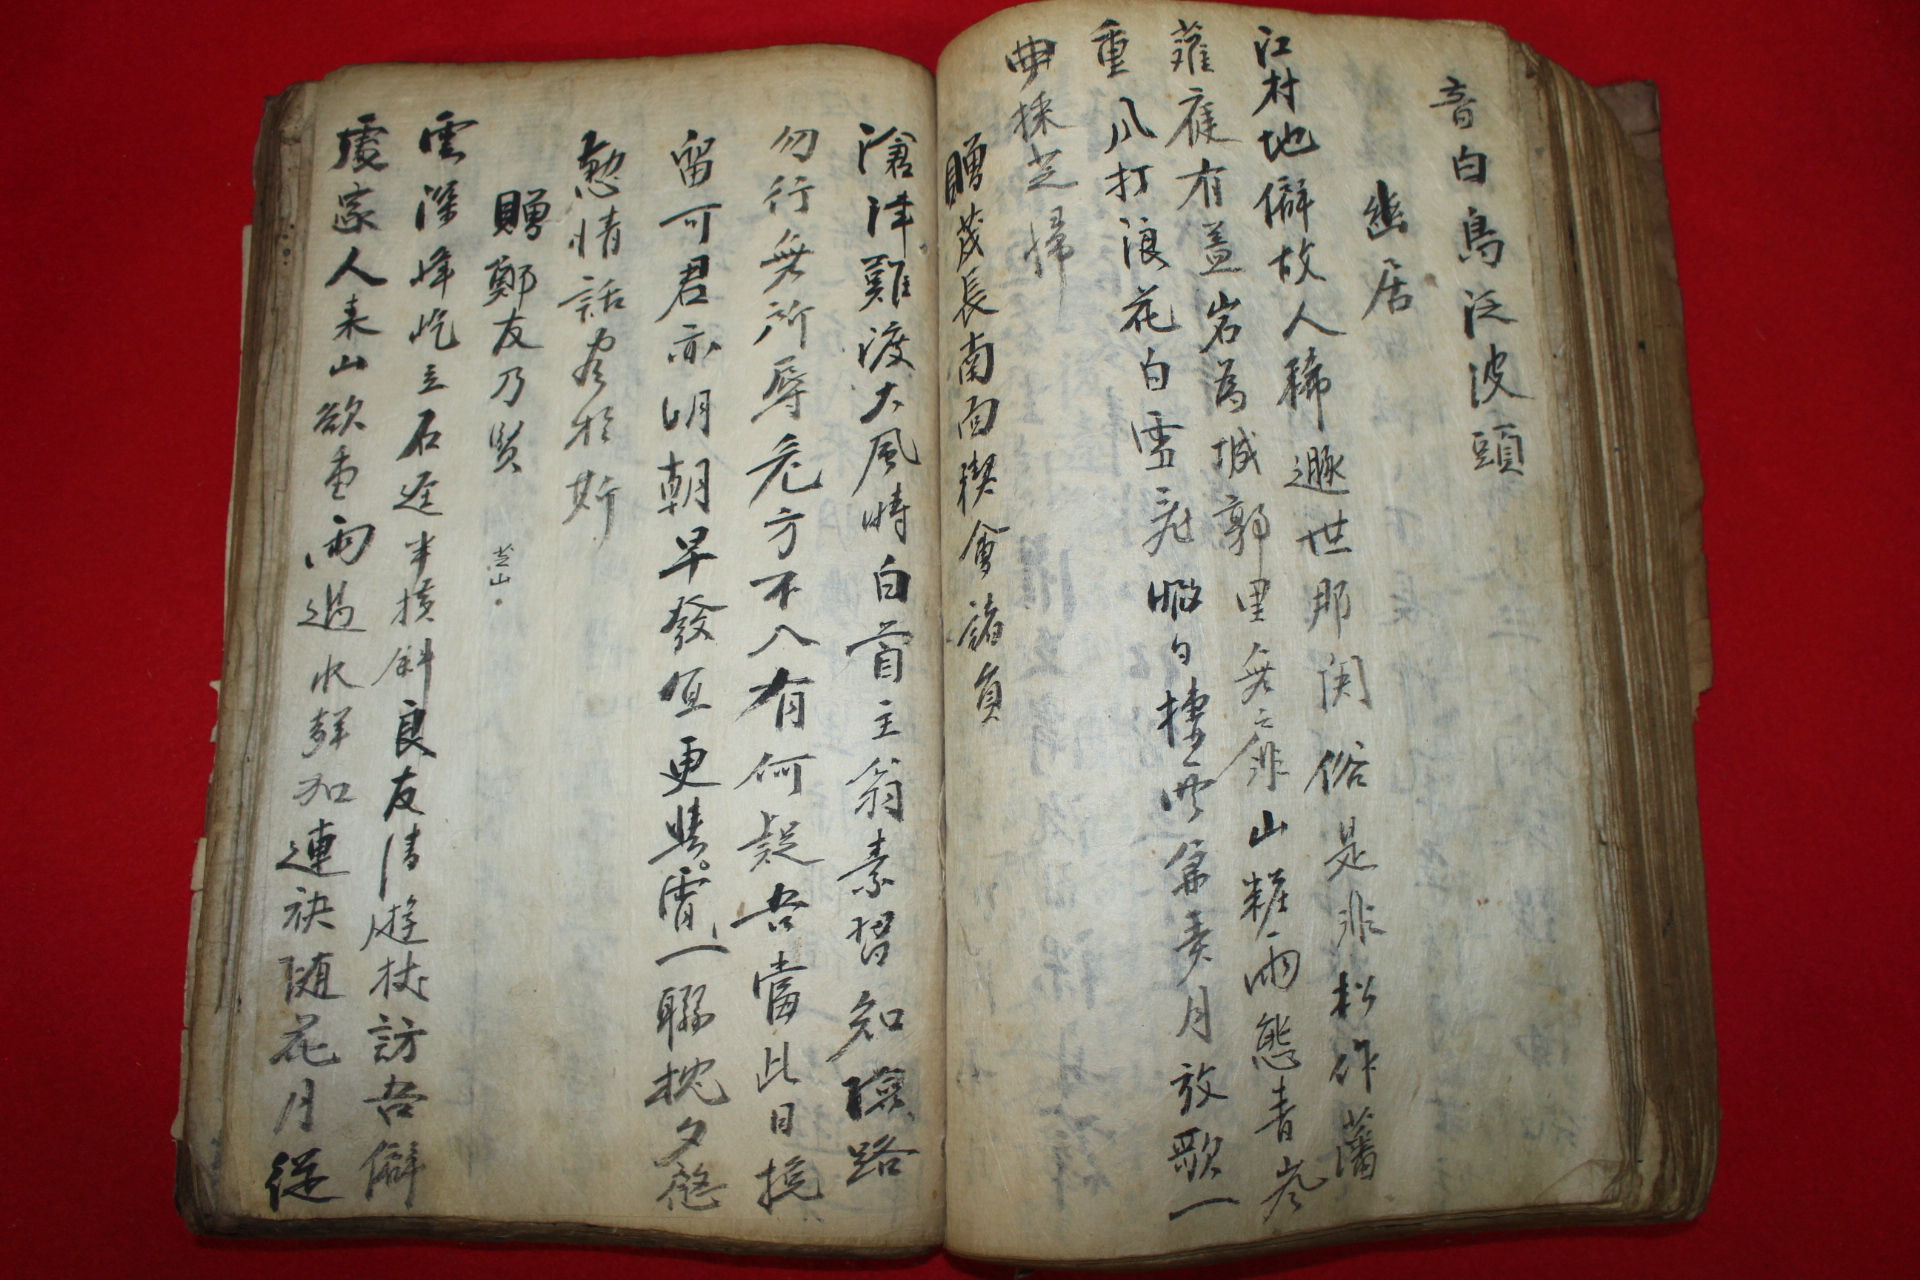 音白鳥泛波頭
幽居
江村地僻故人稀遯世那関俗是非松作藩
蘺有盖岩為城郭里無扉山粧雨態青嵐
重八打浪花白雪飛句棲兩月放歌一
曲採芝歸
贈茂長南面稧會諸員
滄津難渡大風時白首主翁素習知險路
勿行無所辱危方不入有何疑吾當此日挽
留可君亦明朝早發宜更卜霄一聯枕夕慇
懃情話尽於斯
贈鄭友乃贤 芝山
雲深峰屹立石逕半撗斜良友清遊杖訪吾僻
處家人来山欲重雨過水鲜加連袂随花月從